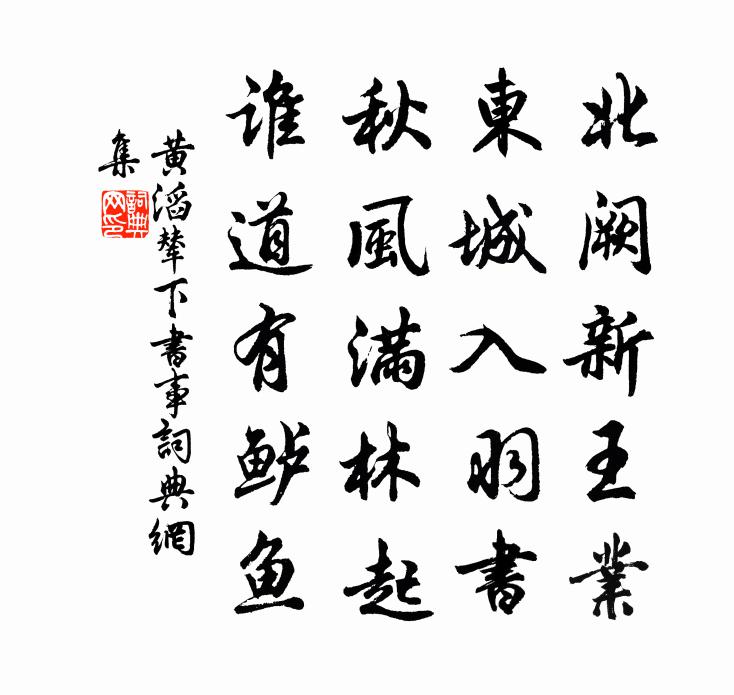 北闕新王業
東城入羽書
秋風滿林起
谁道有鲈鱼
黄滔辇下書事詞典網
集
詞典
网印